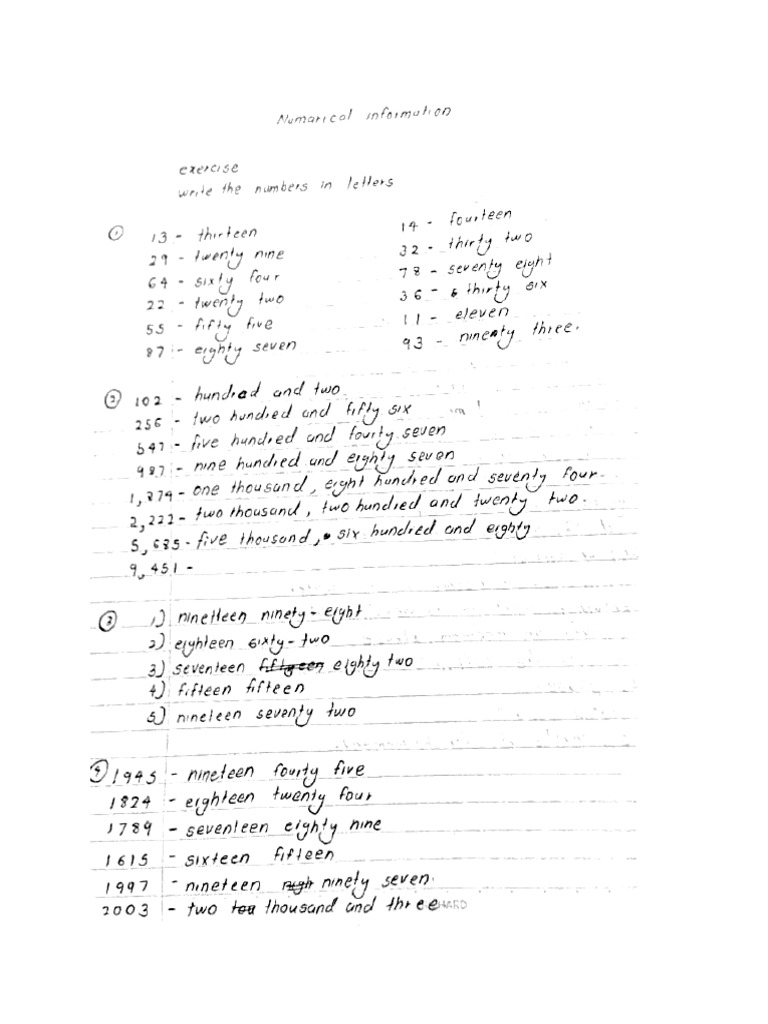 Numarical information
exercise
write the numbers in letters
① 13 - thirteen
29 - twenty nine
64 - sixty four
22 - twenty two
55 - fifty five
87 - eighty seven
14 - fourteen
32 - thirty two
78 - seventy eight
36 - thirty six
11 - eleven
93 - ninenty three.
② 102 - hundred and two
256 - two hundred and fifty six
547 - five hundred and fourty seven
987 - nine hundred and eighty seven
1,874 - one thousand, eight hundred and seventy four.
2,222 - two thousand, two hundred and twenty two.
5,685 - five thousand, six hundred and eighty
9,451 -
③ 1) ninetleen ninety-eight
2) eighteen sixty-two
3) seventeen fiftyeen eighty two
4) fifteen fifteen
5) nineteen seventy two
④ 1945 - nineteen fourty five
1824 - eighteen twenty four
1789 - seventeen eighty nine
1615 - sixteen fifteen
1997 - nineteen ninety seven.
2003 - two thousand and three HARD